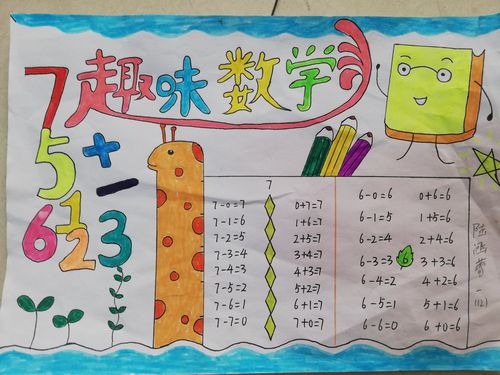 趣味数学
7
5 +
−
6 1 2 3
7
7-0=7 0+7=7
7-1=6 1+6=7
7-2=5 2+5=7
7-3=4 3+4=7
7-4=3 4+3=7
7-5=2 5+2=7
7-6=1 6+1=7
7-7=0 7+0=7
6-0=6 0+6=6
6-1=5 1+5=6
6-2=4 2+4=6
6-3=3 6 3+3=6
6-4=2 4+2=6
6-5=1 5+1=6
6-6=0 6+0=6